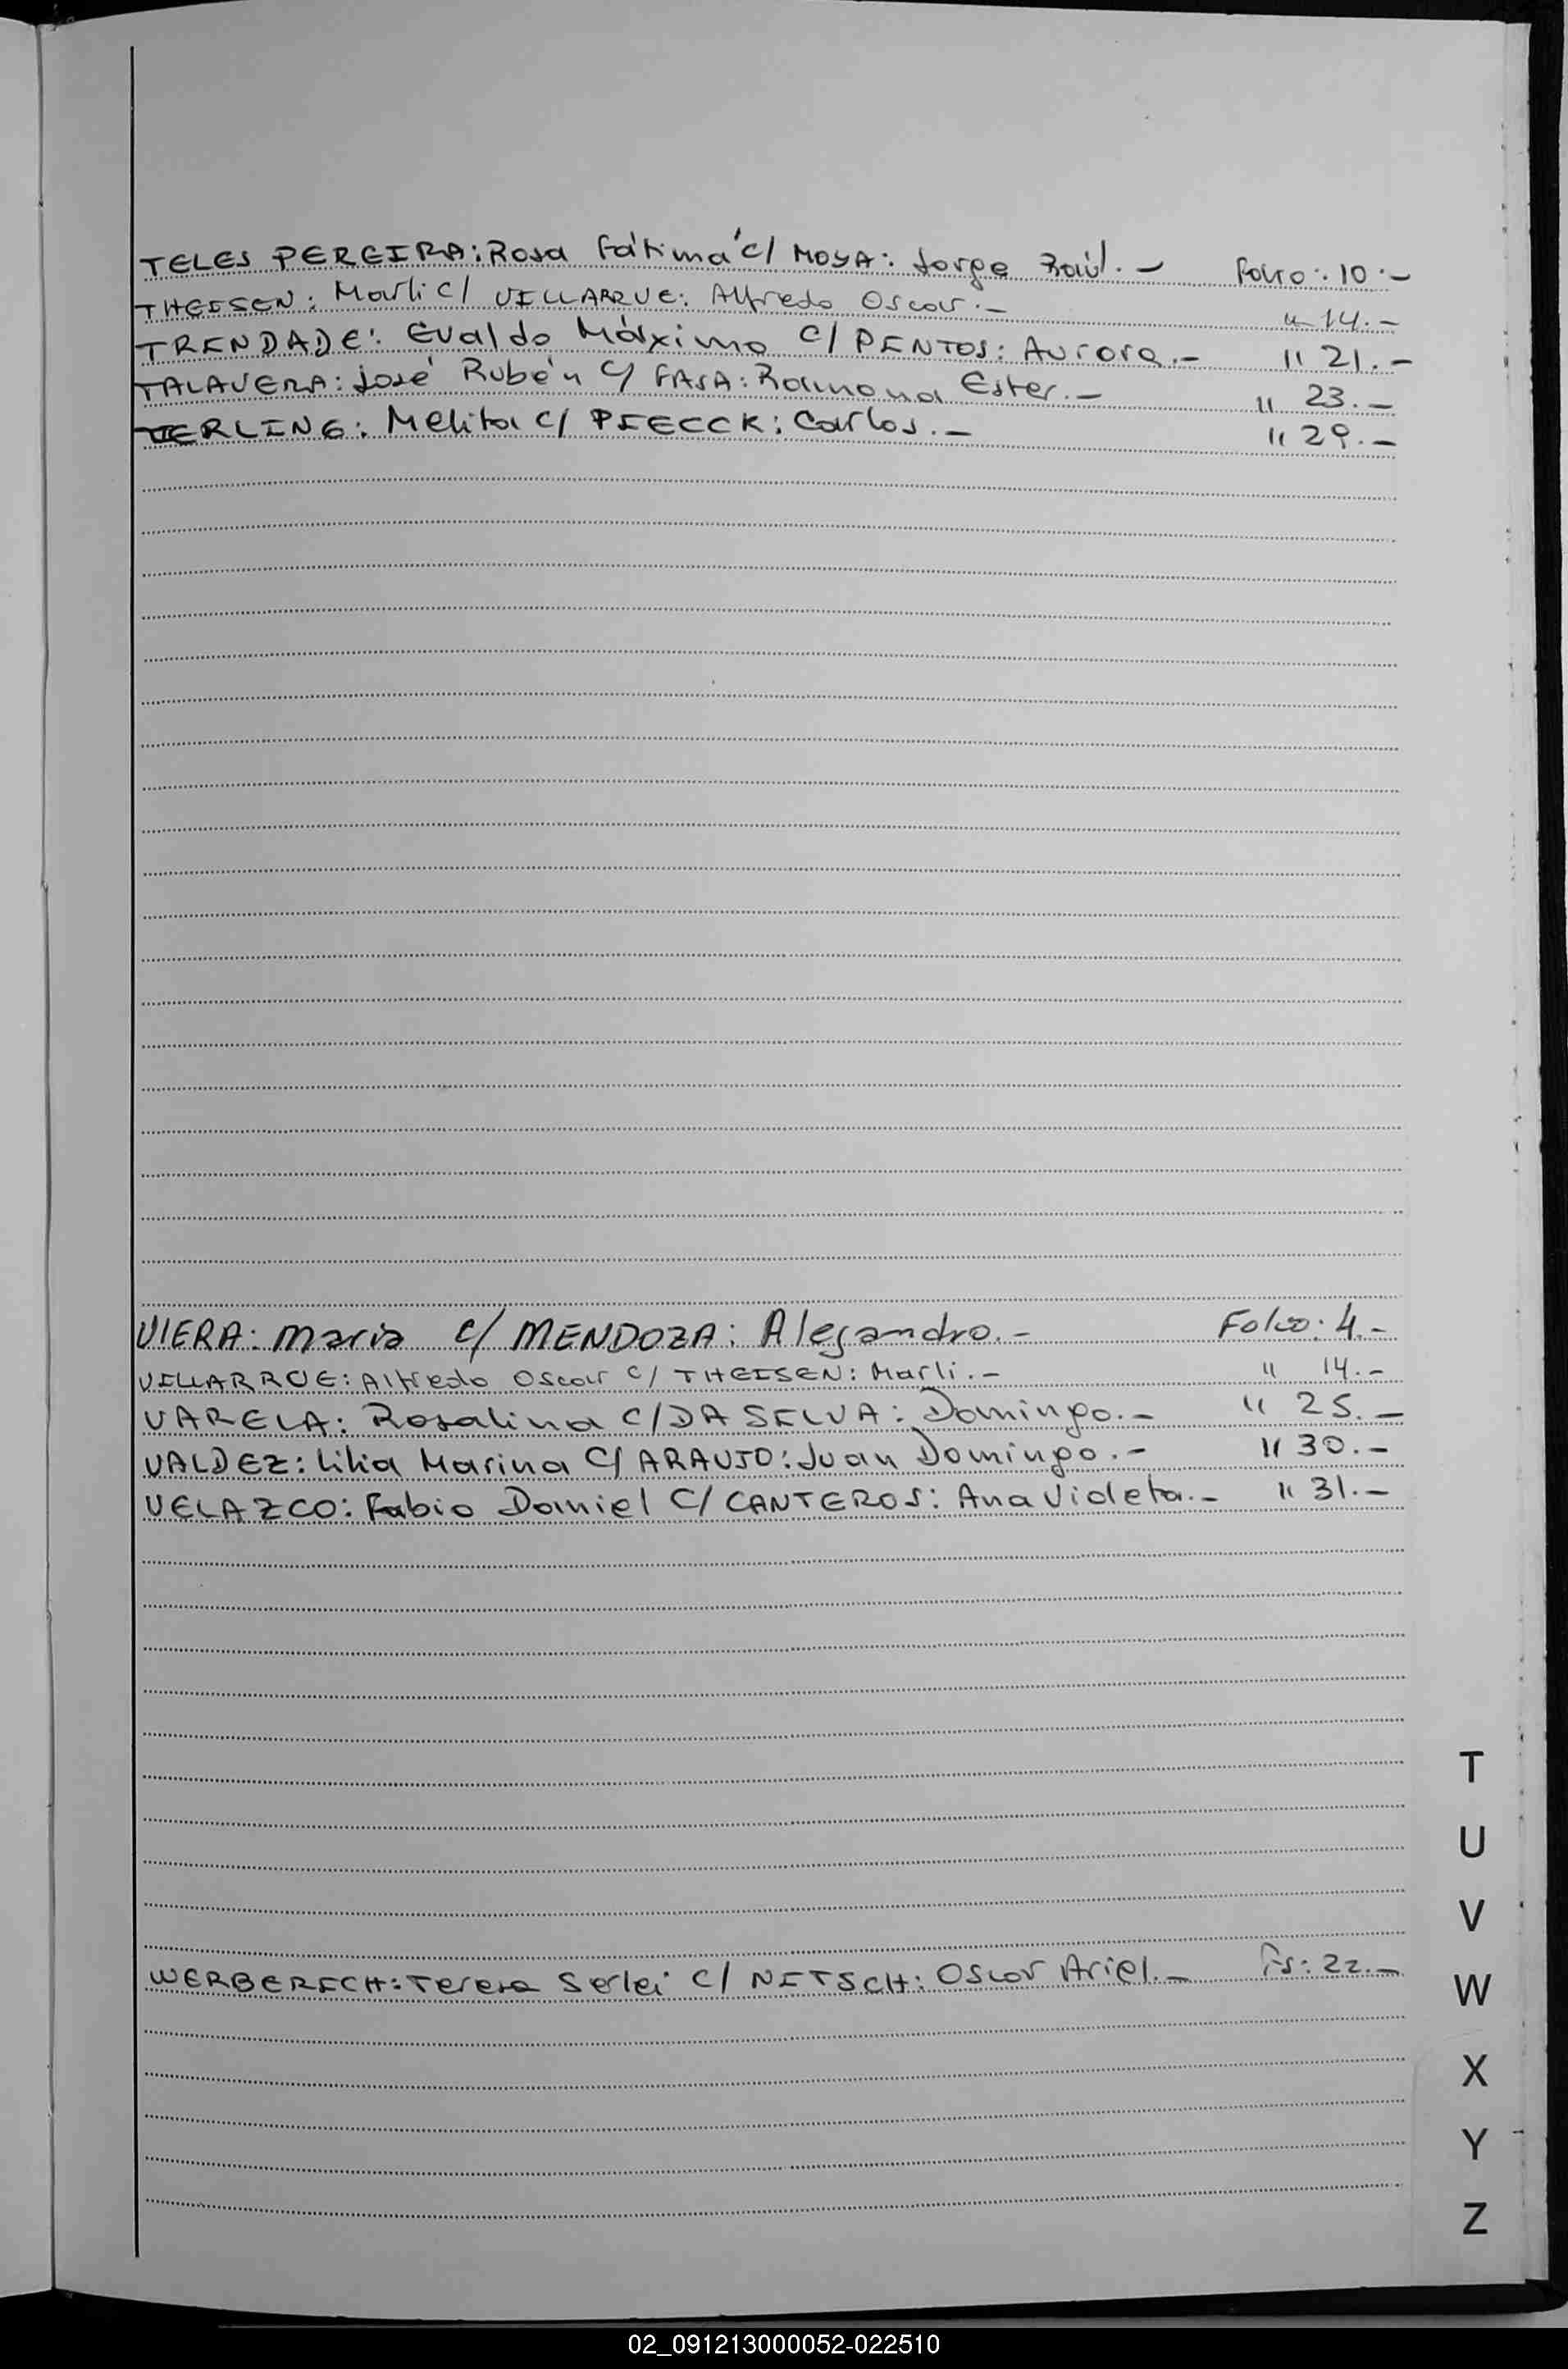 TELES PEREIRA: Rosa Fátima c/ MOYA: Jorge Raúl.- Folio: 10.-
THEISEN: Marli c/ VILLARRUE: Alfredo Oscar.- " 14.-
TRINDADE: Evaldo Máximo c/ PINTOS: Aurora.- " 21.-
TALAVERA: José Rubén c/ FASA: Ramona Ester.- " 23.-
TERLING: Melita c/ PIECCK: Carlos.- " 29.-
VIERA: Maria c/ MENDOZA: Alejandro.- Folio: 4.-
VILLARRUE: Alfredo Oscar c/ THEISEN: Marli.- " 14.-
VARELA: Rosalina c/ DA SILVA: Domingo.- " 25.-
VALDEZ: Lilia Marina c/ ARAUJO: Juan Domingo.- " 30.-
VELAZCO: Fabio Daniel c/ CANTEROS: Ana Violeta.- " 31.-
WERBERICH: Teresa Serlei c/ NITSCH: Oscar Ariel.- Fs: 22.-
T
U
V
W
X
Y
Z
02_091213000052-022510